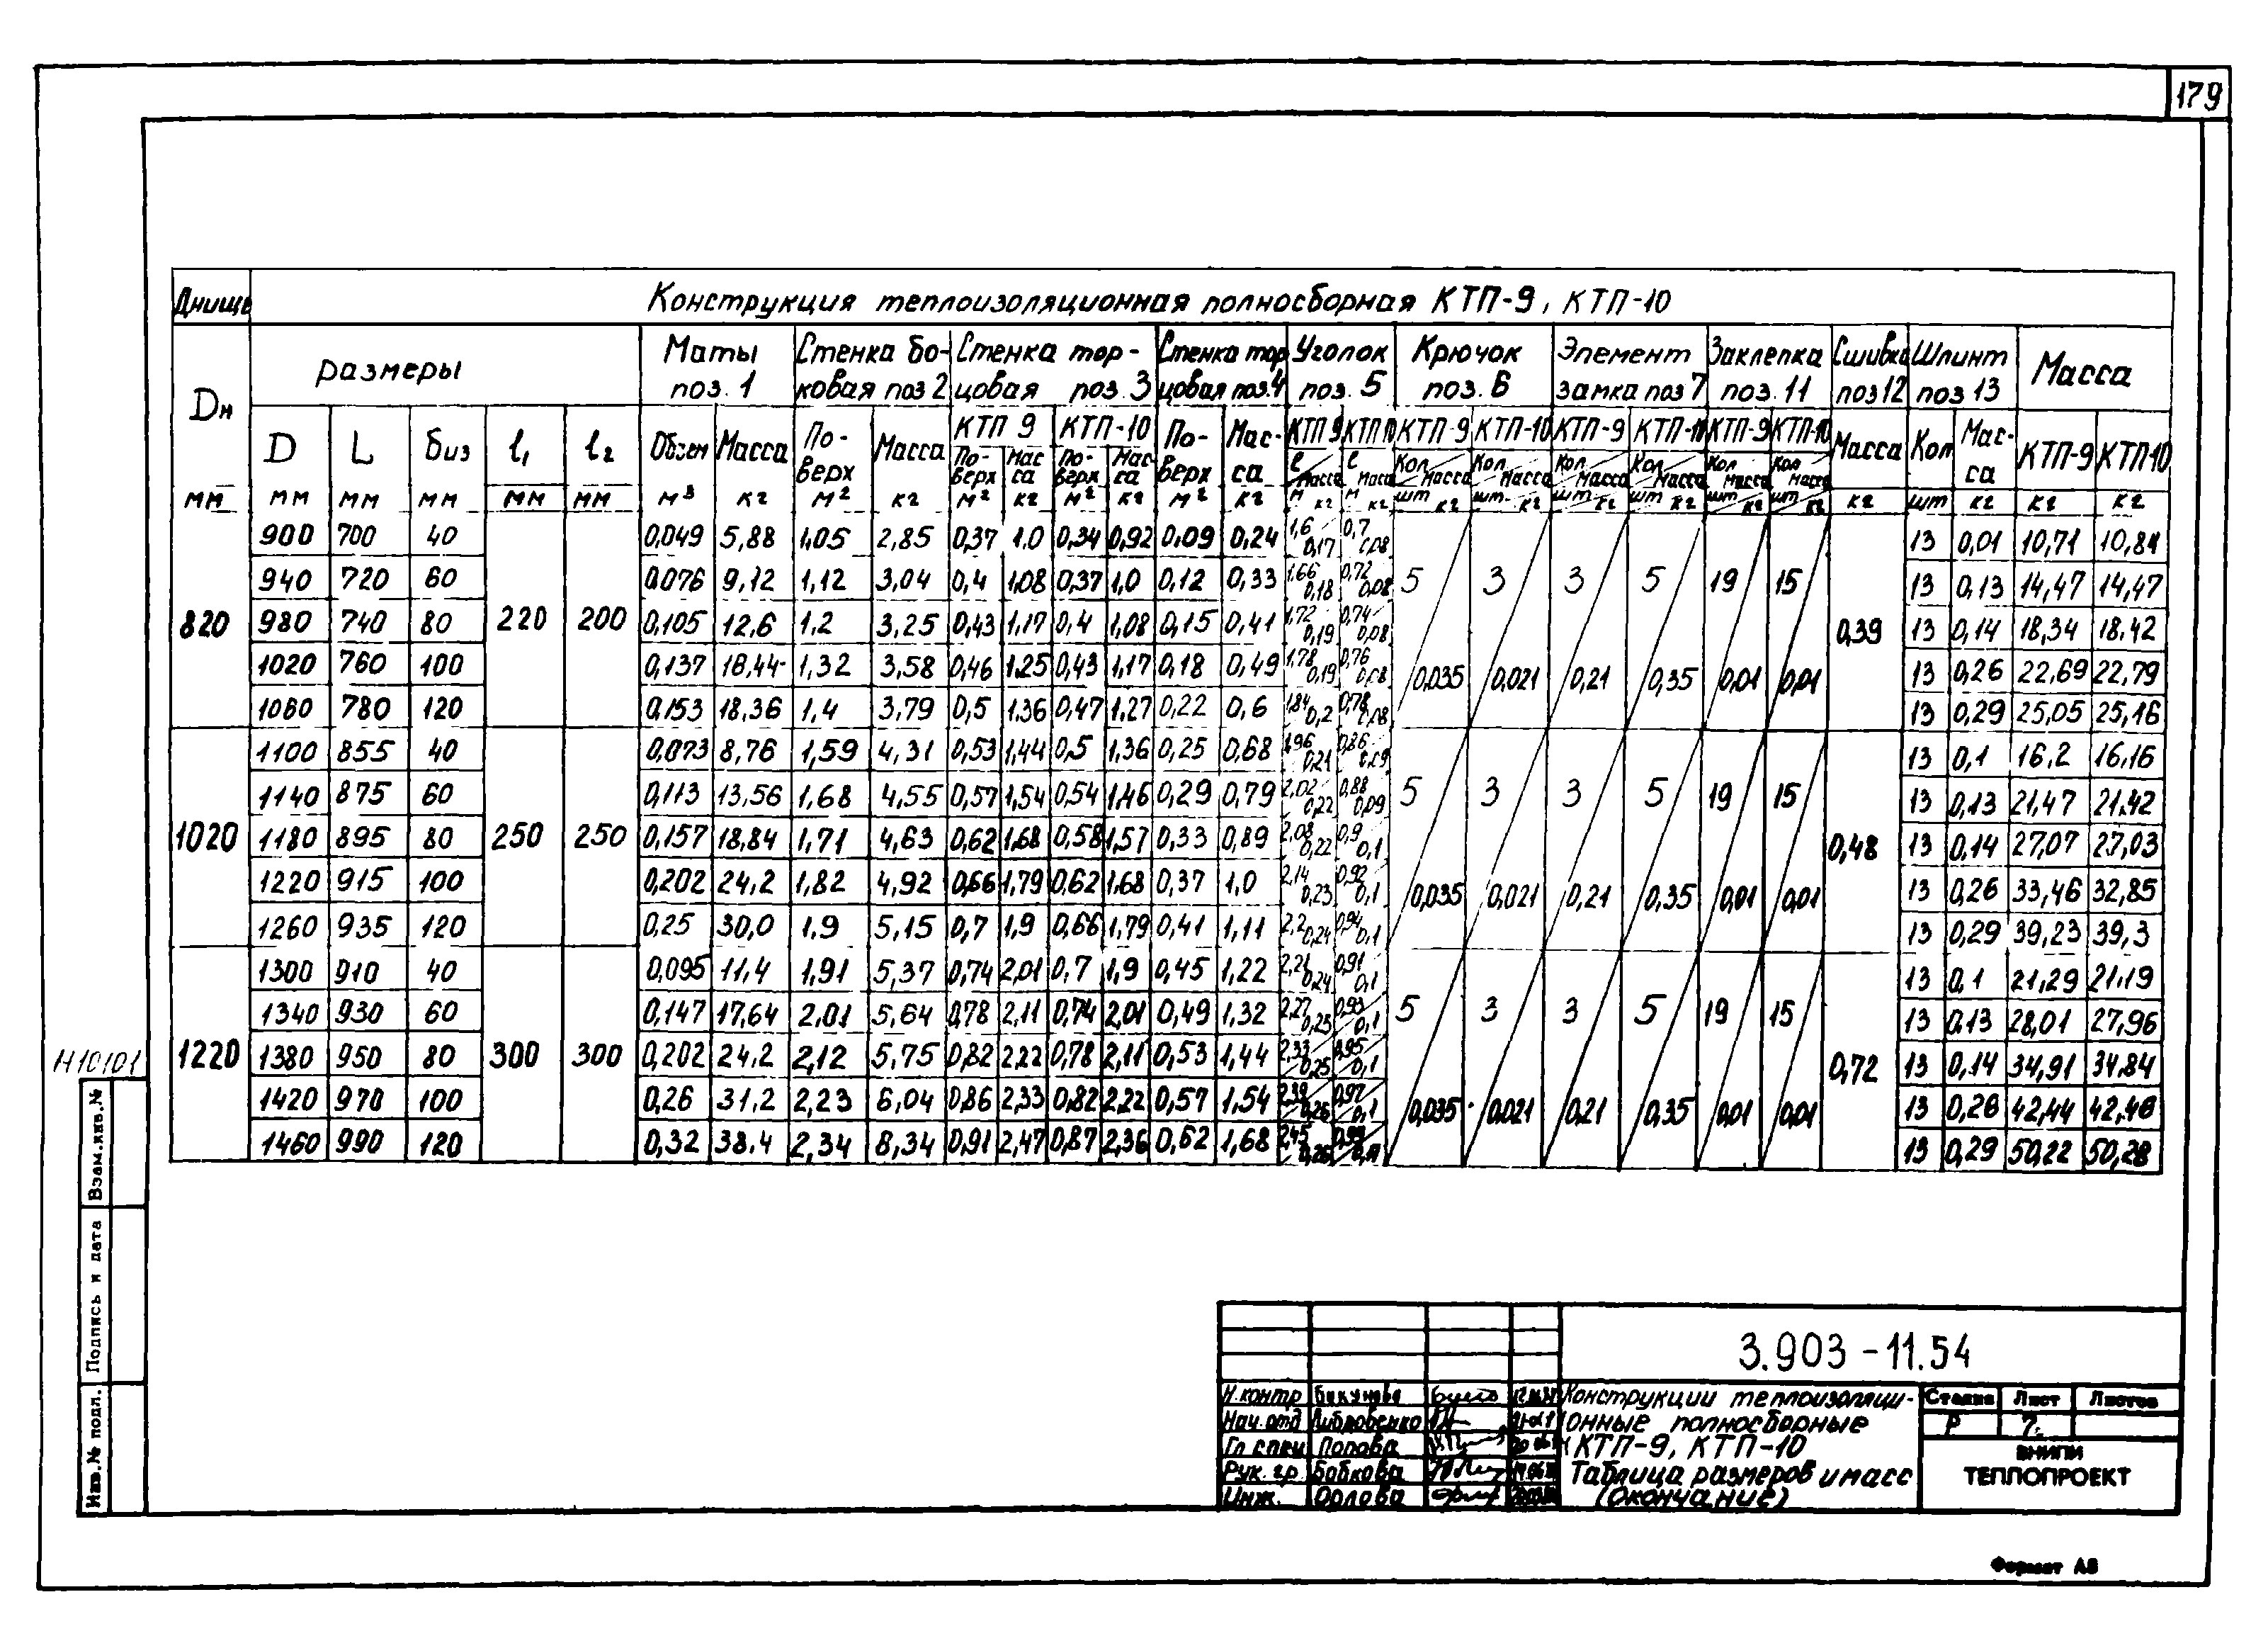 179
Днище Конструкция теплоизоляционная полносборная КТП-9, КТП-10
Dн размеры Маты поз. 1 Стенка боковая поз 2 Стенка торцовая поз. 3 Стенка торцовая поз.4 Уголок поз. 5 Крючок поз. 6 Элемент замка поз 7 Заклепка поз. 11 Сшивка поз 12 Шплинт поз 13 Масса
D L биз l₁ l₂ Объем Масса По-верх Масса КТП 9 КТП-10 По-верх Мас-са КТП 9 КТП 10 КТП-9 КТП-10 КТП-9 КТП-10 КТП-9 КТП-10 Масса Кол Мас-са КТП-9 КТП-10
По-верх Мас са По-верх Мас-са l Масса l Масса Кол Масса Кол Масса Кол Масса Кол Масса Кол Масса Кол Масса
мм мм мм мм мм мм м³ кг м² кг м² кг м² кг м² кг м кг м кг шт кг шт кг шт кг шт кг шт кг шт кг кг шт кг кг кг
900 700 40 0,049 5,88 1,05 2,85 0,37 1,0 0,34 0,92 0,09 0,24 1,6 0,17 0,7 0,08 13 0,01 10,71 10,84
940 720 60 0,076 9,12 1,12 3,04 0,4 1,08 0,37 1,0 0,12 0,33 1,66 0,18 0,72 0,08 5 3 3 5 19 15 13 0,13 14,47 14,47
820 980 740 80 220 200 0,105 12,6 1,2 3,25 0,43 1,17 0,4 1,08 0,15 0,41 1,72 0,19 0,74 0,08 0,39 13 0,14 18,34 18,42
1020 760 100 0,137 18,44 1,32 3,58 0,46 1,25 0,43 1,17 0,18 0,49 1,78 0,19 0,76 0,08 0,035 0,021 0,21 0,35 0,01 0,01 13 0,26 22,69 22,79
1060 780 120 0,153 18,36 1,4 3,79 0,5 1,36 0,47 1,27 0,22 0,6 1,84 0,2 0,78 0,08 13 0,29 25,05 25,16
1100 855 40 0,073 8,76 1,59 4,31 0,53 1,44 0,5 1,36 0,25 0,68 1,96 0,21 0,86 0,09 13 0,1 16,2 16,16
1140 875 60 0,113 13,56 1,68 4,55 0,57 1,54 0,54 1,46 0,29 0,79 2,02 0,22 0,88 0,09 5 3 3 5 19 15 13 0,13 21,47 21,42
1020 1180 895 80 250 250 0,157 18,84 1,71 4,63 0,62 1,68 0,58 1,57 0,33 0,89 2,08 0,22 0,9 0,1 0,48 13 0,14 27,07 27,03
1220 915 100 0,202 24,2 1,82 4,92 0,66 1,79 0,62 1,68 0,37 1,0 2,14 0,23 0,92 0,1 0,035 0,021 0,21 0,35 0,01 0,01 13 0,26 33,46 32,85
1260 935 120 0,25 30,0 1,9 5,15 0,7 1,9 0,66 1,79 0,41 1,11 2,2 0,24 0,94 0,1 13 0,29 39,23 39,3
1300 910 40 0,095 11,4 1,91 5,37 0,74 2,01 0,7 1,9 0,45 1,22 2,21 0,24 0,91 0,1 13 0,1 21,29 21,19
1340 930 60 0,147 17,64 2,01 5,64 0,78 2,11 0,74 2,01 0,49 1,32 2,27 0,25 0,93 0,1 5 3 3 5 19 15 13 0,13 28,01 27,96
1220 1380 950 80 300 300 0,202 24,2 2,12 5,75 0,82 2,22 0,78 2,11 0,53 1,44 2,33 0,25 0,95 0,1 0,72 13 0,14 34,91 34,84
1420 970 100 0,26 31,2 2,23 6,04 0,86 2,33 0,82 2,22 0,57 1,54 2,39 0,26 0,97 0,1 0,035 0,021 0,21 0,35 0,01 0,01 13 0,26 42,44 42,46
1460 990 120 0,32 38,4 2,34 8,34 0,91 2,47 0,87 2,36 0,62 1,68 2,45 0,26 0,99 13 0,29 50,22 50,28
Н10101
Взам.инв.№
Подпись и дата
Инв.№ подл.
3.903-11.54
Н.контр
Нач. отд
Гл спец Попова
Рук. гр. Бобкова
Инж. Орлова
Конструкции теплоизоляци-
онные полносборные
КТП-9, КТП-10
Таблица размеров и масс
(окончание)
Стадия Лист Листов
Р 7
ВНИПИ
ТЕПЛОПРОЕКТ
Формат